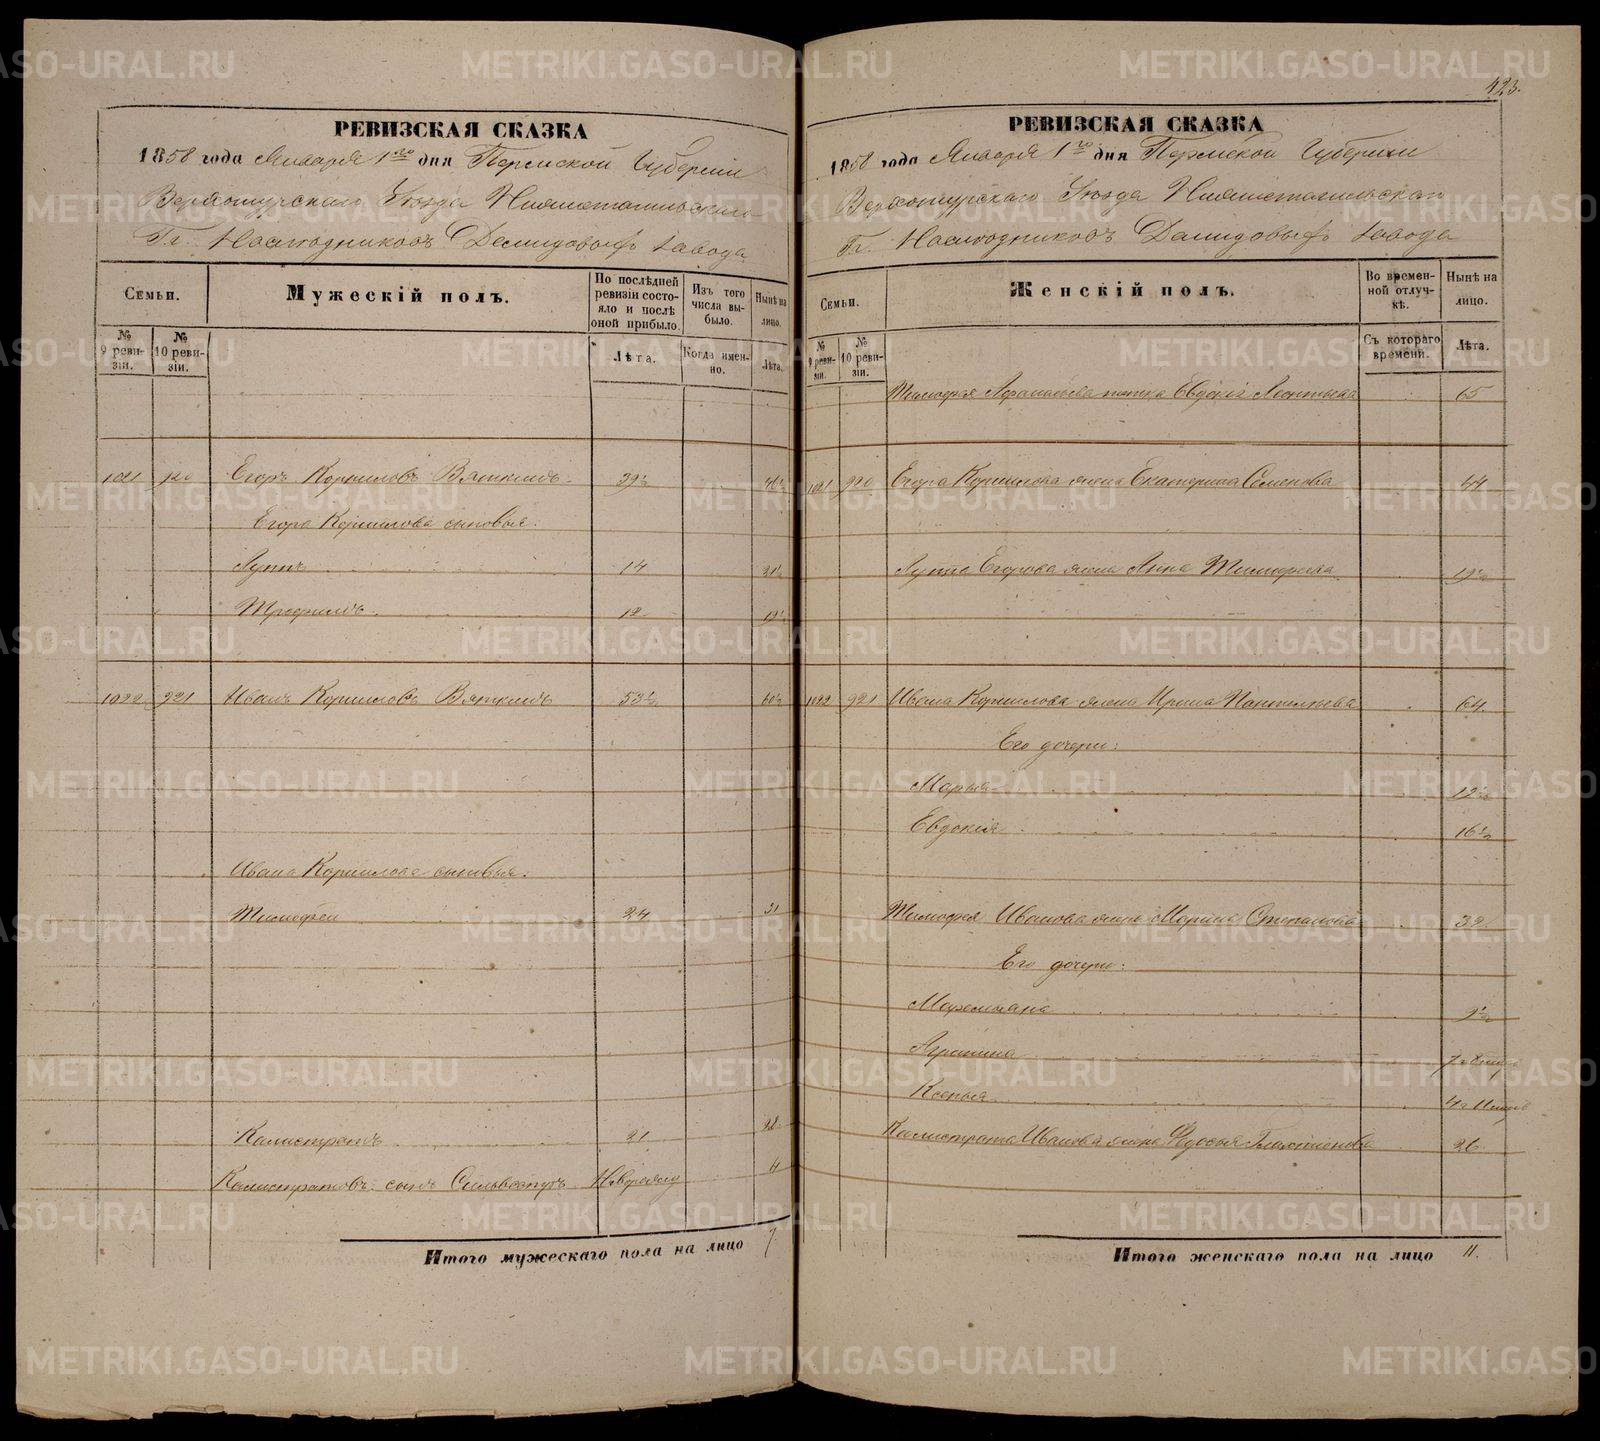 423.
РЕВИЗСКАЯ СКАЗКА
1858 года Января 1го дня Пермской Губерніи
Верхотурскаго Уѣзда Нижнетагильскаго
Гг. Наслѣдниковъ Демидовыхъ завода
Семьи.
Мужескій полъ.
По послѣдней ревизіи состояло и послѣ оной прибыло.
Изъ того числа выбыло.
Нынѣ на лицо.
№ 9 ревизіи.
№ 10 ревизіи.
Лѣта.
Когда именно.
Лѣта.
1021 920 Егоръ Корниловъ Вяткинъ 39½ 46½
Егора Корнилова сыновья:
Луппъ 14 21½
Трофимъ 12 19½
1022 921 Иванъ Корниловъ Вяткинъ 53½ 60½
Ивана Корнилова сыновья:
Тимофей 24 31
Калистратъ 21 28
Калистратовъ сынъ Сильвестръ Новорожд 4
Итого мужескаго пола на лицо 7.
РЕВИЗСКАЯ СКАЗКА
1858 года Января 1го дня Пермской Губерніи
Верхотурскаго Уѣзда Нижнетагильскаго
Гг. Наслѣдниковъ Демидовыхъ завода
Семьи.
Женскій полъ.
Во временной отлучкѣ.
Нынѣ на лицо.
№ 9 ревизіи.
№ 10 ревизіи.
Съ котораго времени.
Лѣта.
Тимофея Афанасьева тетка Евдокія Леонтьева 65
1021 920 Егора Корнилова жена Екатерина Семенова 44
Луппа Егорова жена Анна Тимофеева 19½
1022 921 Ивана Корнилова жена Ирина Пантелеева 64
Его дочери:
Марья 12½
Евдокія 16½
Тимофея Иванова жена Марина Степанова 32
Его дочери:
Маремьяна 9½
Агрипина
Ксенья
Калистрата Иванова жена Федосья 26
Итого женскаго пола на лицо 11.
METRIKI.GASO-URAL.RU